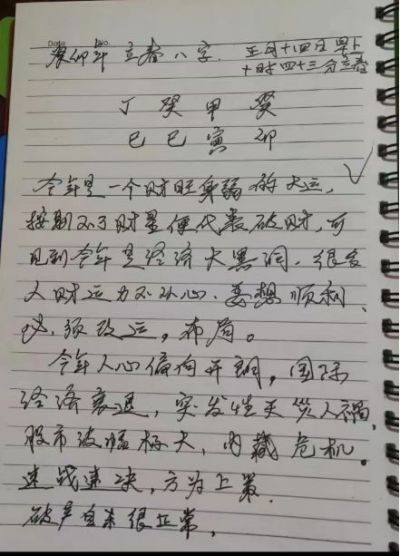 癸卯年 立春八字. 正月十四日 早上
十时四十三分立春
丁 癸 甲 癸
巳 巳 寅 卯
今年是一个财旺身弱的大运,
不了财星便代表破财,可
见到今年是经济大黑洞,很多
人财运力不从心,要想顺利
必须改运,布局。
今年人心偏向开朗,国际
经济衰退,突发性天灾人祸,
股市波幅极大,内藏危机。
速战速决,方为上策.
破产自杀很正常,